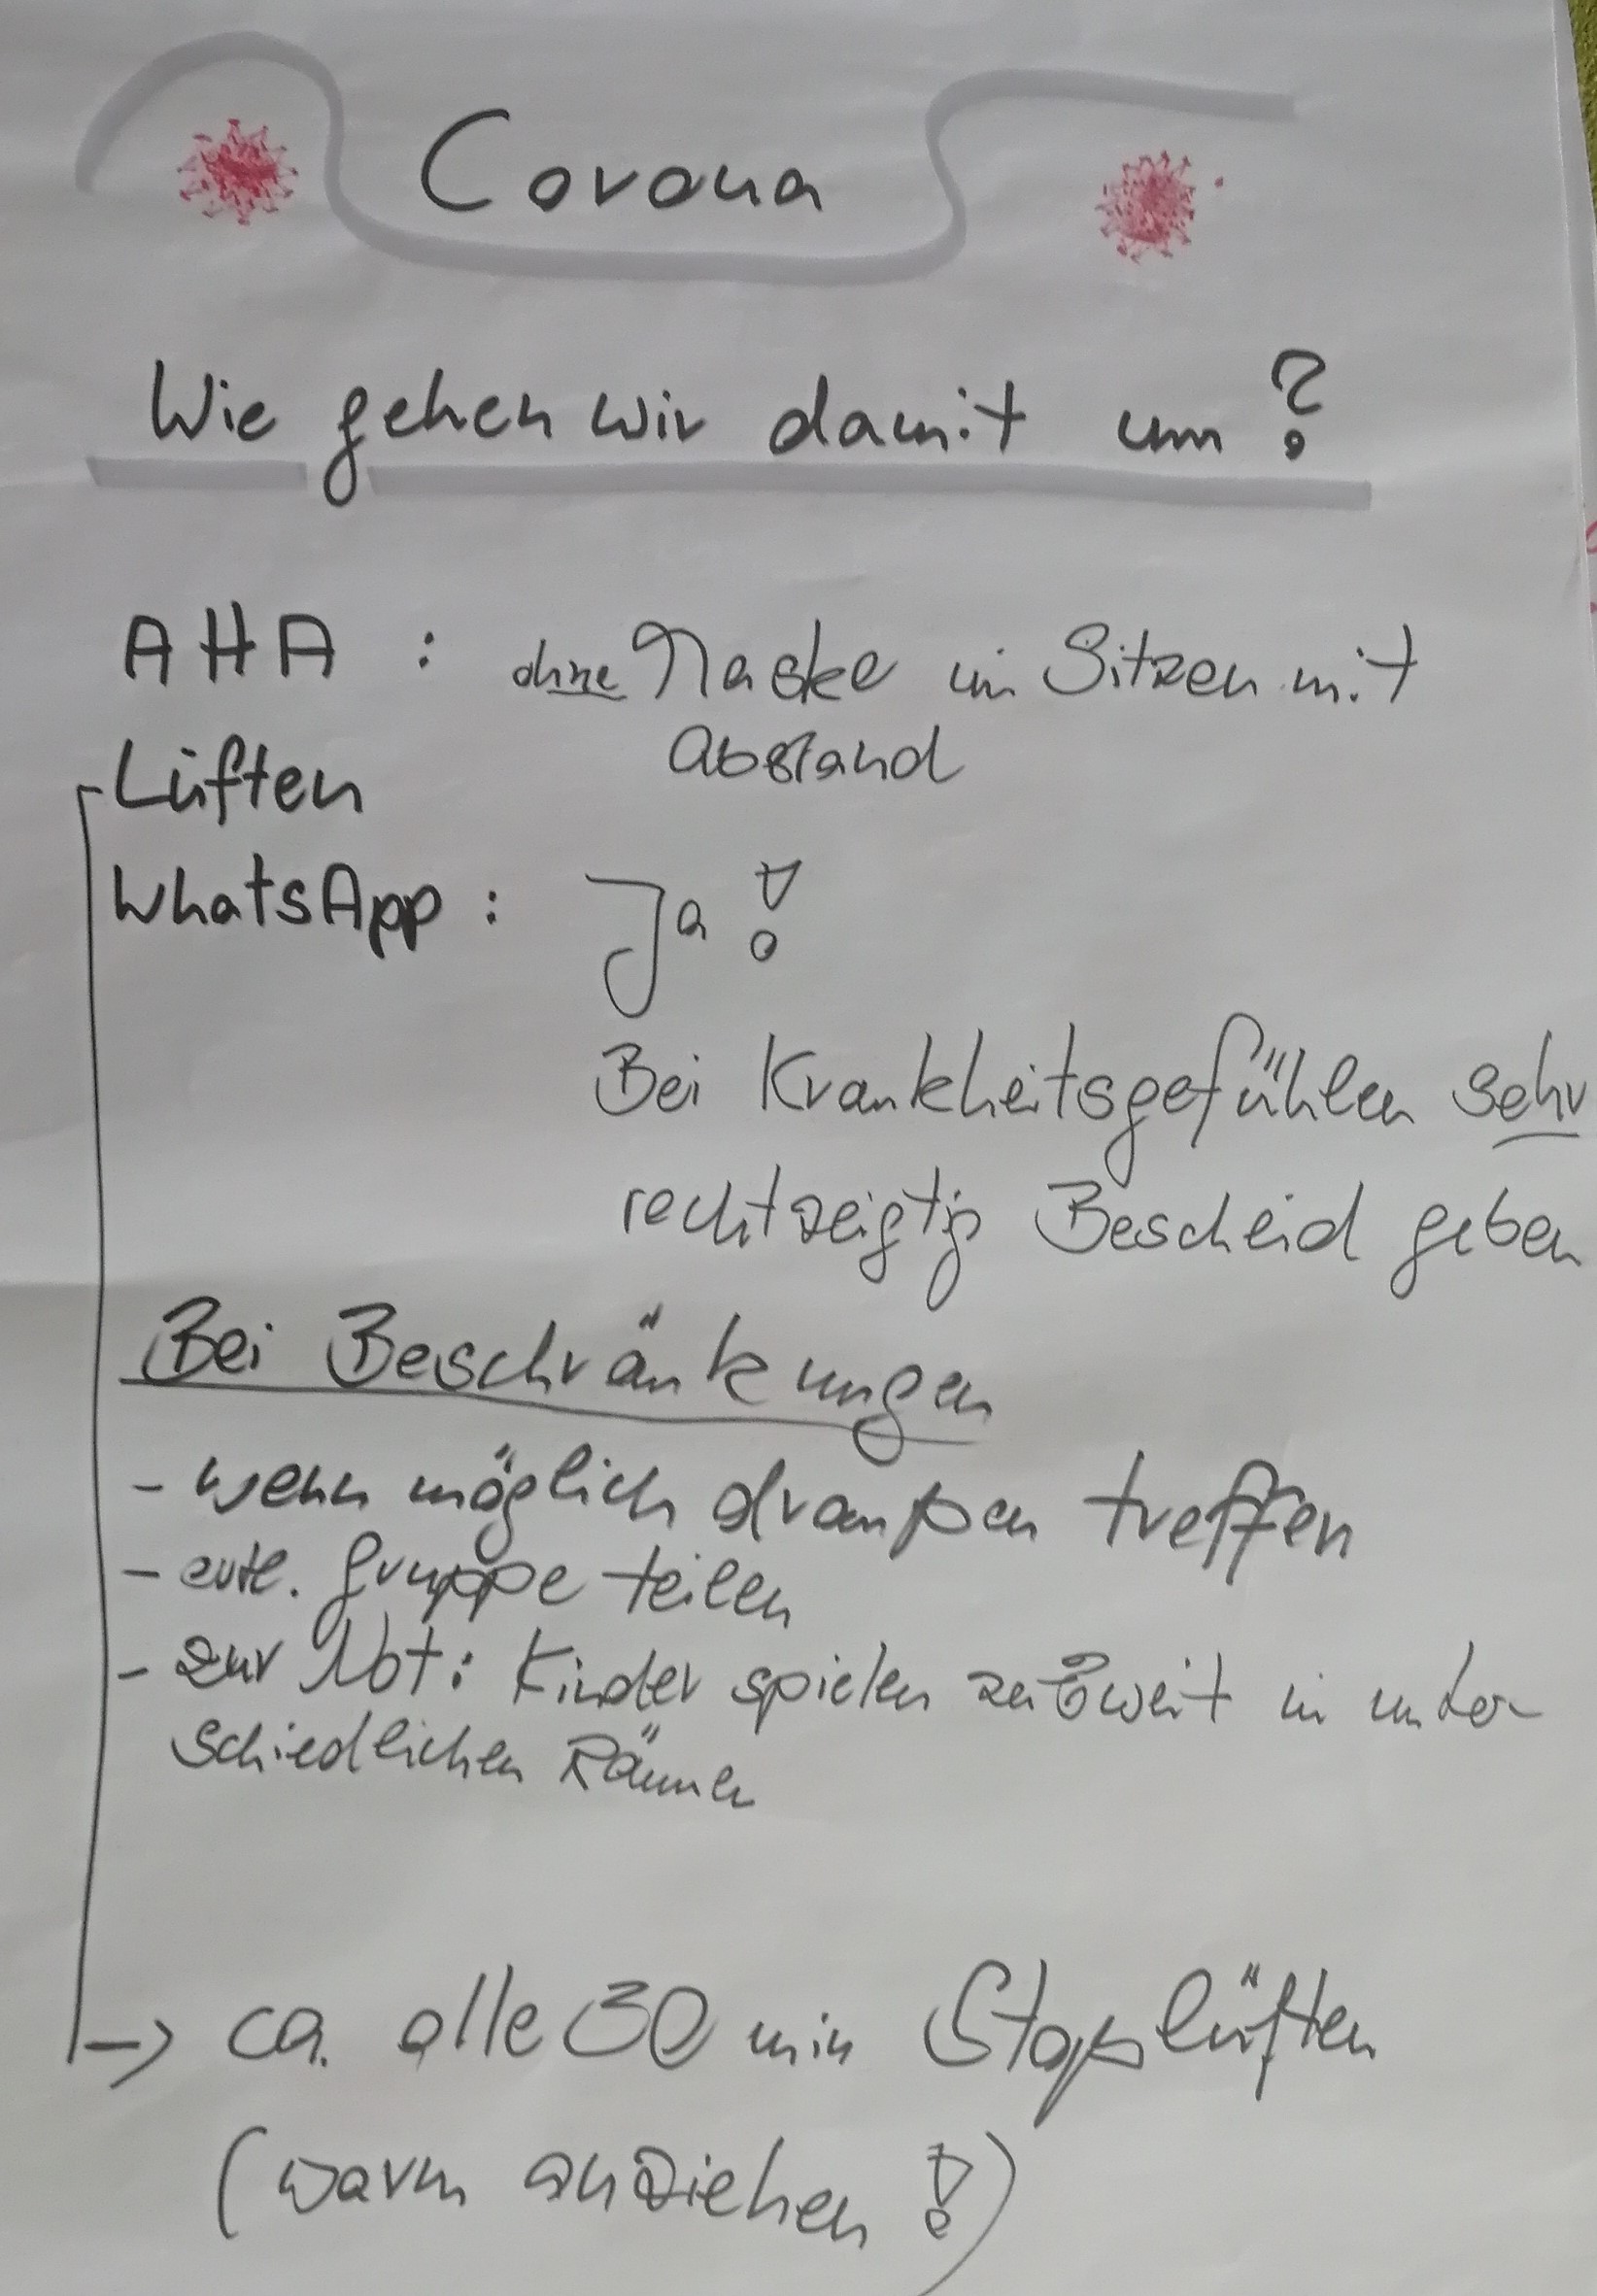 Corona
Wie gehen wir damit um?
AHA : ohne Maske im Sitzen mit
Abstand
Lüften
WhatsApp : Ja!
Bei Krankheitsgefühlen sehr
rechtzeigtig Bescheid geben
Bei Beschränkungen
- wenn möglich draußen treffen
- evtl. Gruppe teilen
- zur Not: Kinder spielen zu zweit in unter-
schiedlichen Räumen
-> ca. alle 30 min Stoßlüften
(warm anziehen!)